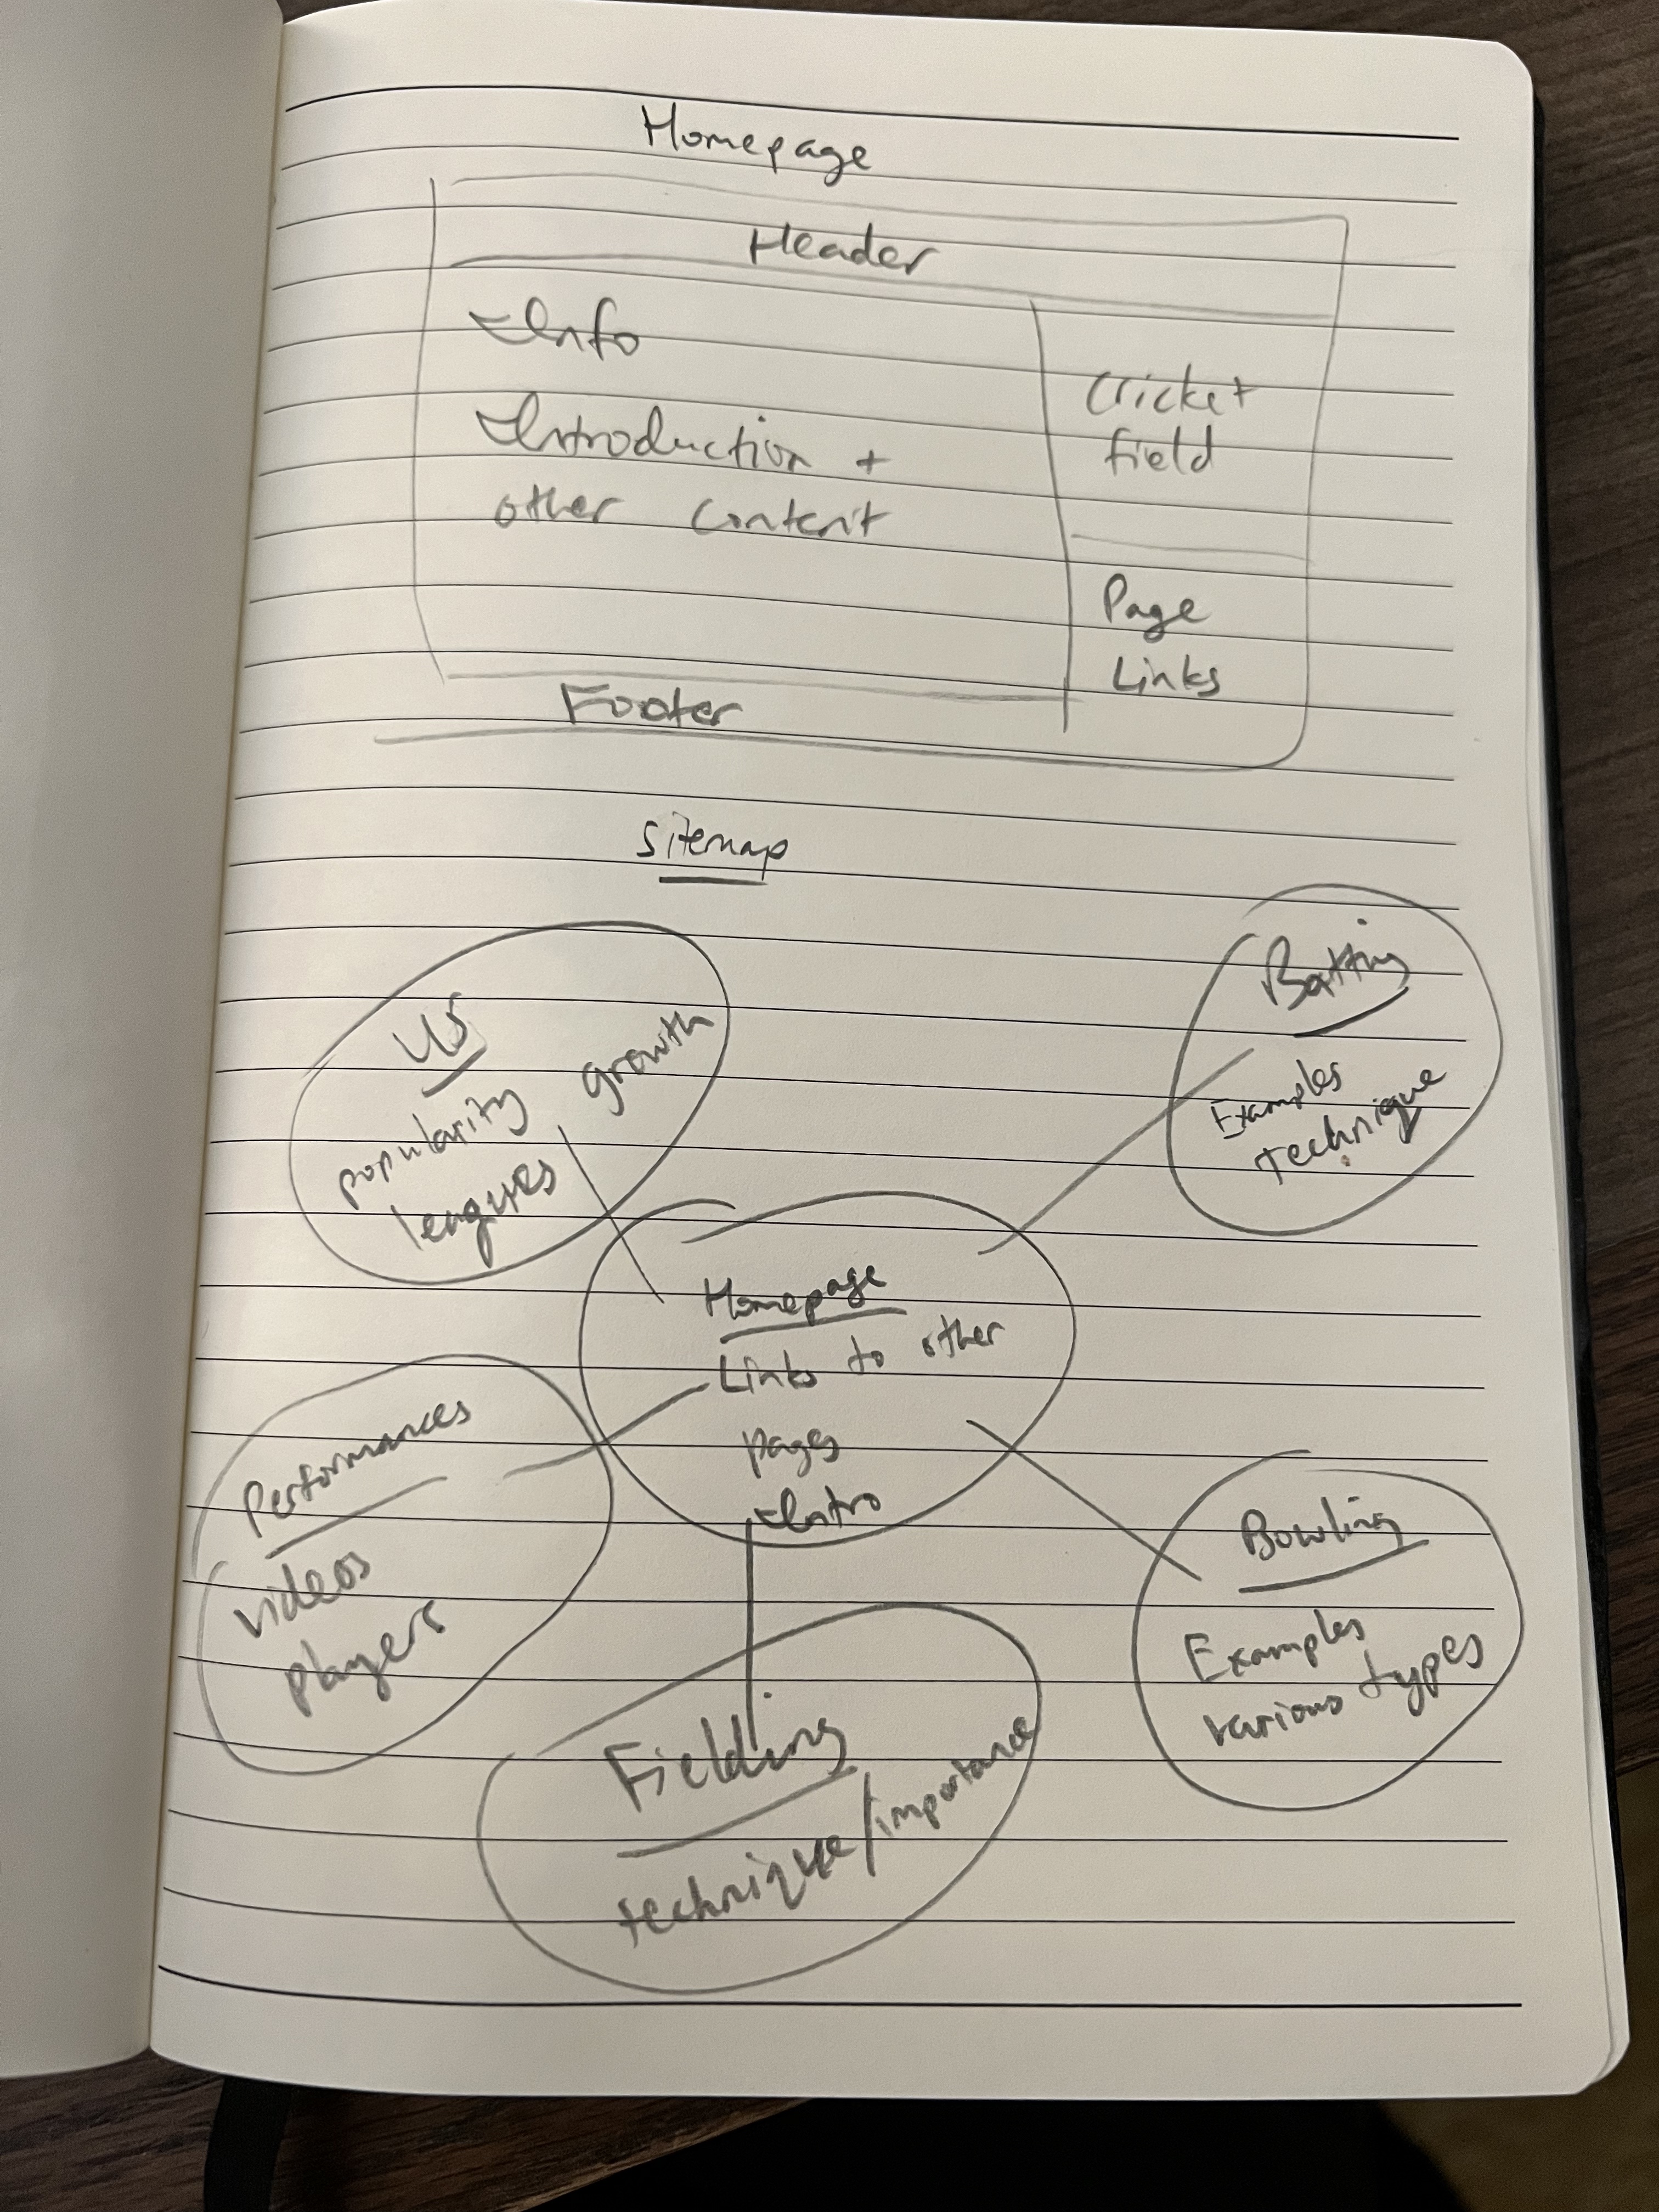 Homepage
Header
Info
Introduction +
other content
Cricket
field
Page
Links
Footer
Sitemap
US
popularity
growth
leagues
Batting
Examples
technique
Homepage
Links to other
pages
Intro
Performances
videos
players
Bowling
Examples
various types
Fielding
technique/importance